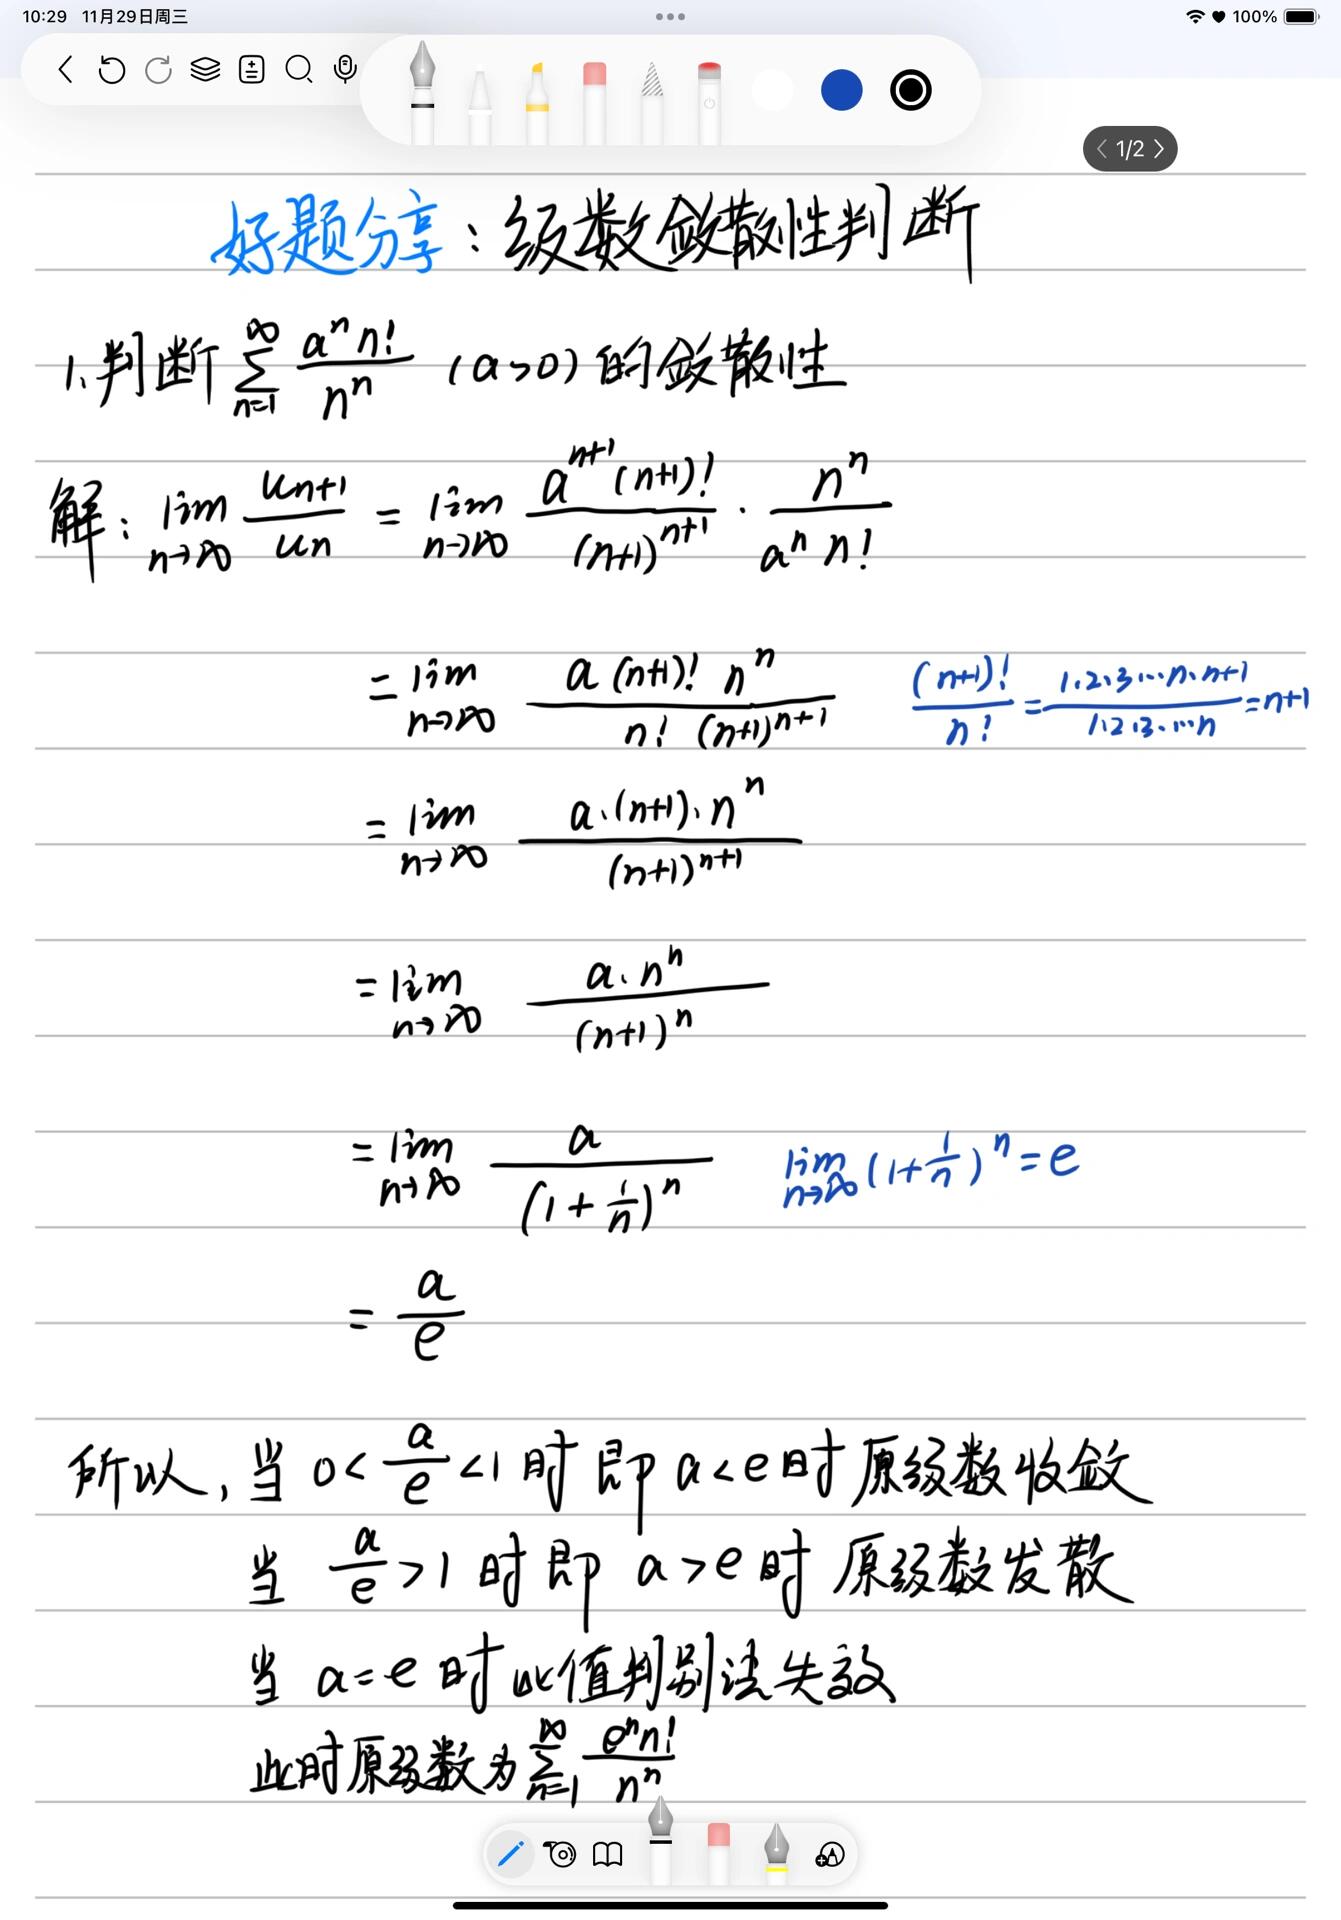 10:29 11月29日周三 100%
1/2
好题分享：级数敛散性判断
1.判断 \sum_{n=1}^{∞} \frac{a^n n!}{n^n} (a>0) 的敛散性
解：\lim_{n→∞} \frac{u_{n+1}}{u_n} = \lim_{n→∞} \frac{a^{n+1}(n+1)!}{(n+1)^{n+1}} · \frac{n^n}{a^n n!}
= \lim_{n→∞} \frac{a(n+1)! n^n}{n! (n+1)^{n+1}} \frac{(n+1)!}{n!} = \frac{1·2·3···n·n+1}{1·2·3·…n} = n+1
= \lim_{n→∞} \frac{a·(n+1)·n^n}{(n+1)^{n+1}}
= \lim_{n→∞} \frac{a·n^n}{(n+1)^n}
= \lim_{n→∞} \frac{a}{(1+\frac{1}{n})^n} \lim_{n→∞} (1+\frac{1}{n})^n = e
= \frac{a}{e}
所以，当 0<\frac{a}{e}<1 时 即 a<e 时 原级数收敛
当 \frac{a}{e}>1 时 即 a>e 时 原级数发散
当 a=e 时 比值判别法失效
此时原级数为 \sum_{n=1}^{∞} \frac{e^n n!}{n^n}